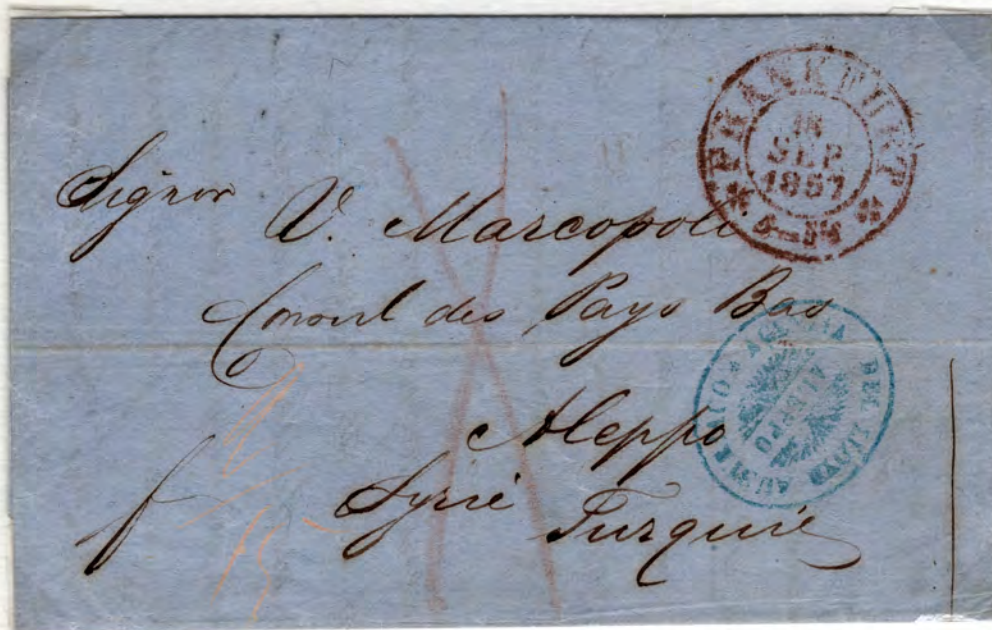 FRANKFURT
18
SEP.
1857
Signor
V. Marcopoli
Consul des Pays Bas
Aleppo
Syrie
Turquie
AGENZIA DEL LLOYD AUSTRIACO
ALEPPO